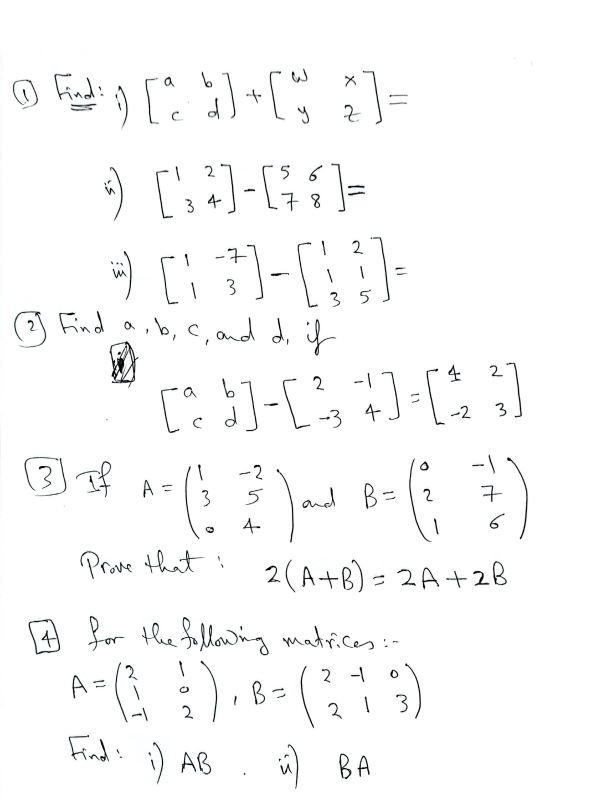 ① Find: i) [a b; c d] + [w x; y z] =
ii) [1 2; 3 4] - [5 6; 7 8] =
iii) [1 -7; 1 3] - [1 2; 1 1; 3 5] =
② Find a, b, c, and d, if
[a b; c d] - [2 -1; -3 4] = [4 2; -2 3]
③ If A = (1 -2; 3 5; 0 4) and B = (0 -1; 2 7; 1 6)
Prove that : 2(A+B) = 2A + 2B
④ for the following matrices :-
A = (2 1; 1 0; -1 2) , B = (2 -1 0; 2 1 3)
Find : i) AB . ii) BA